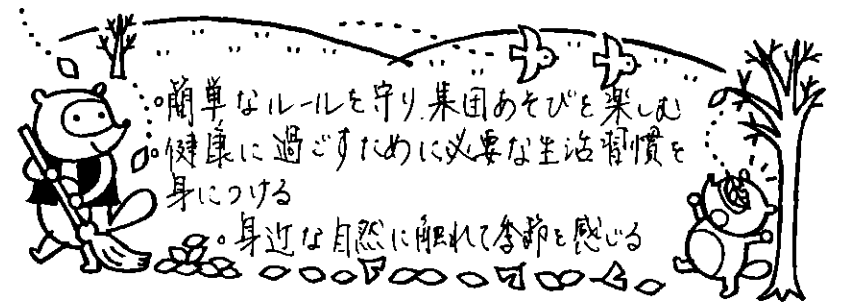 ○簡単なルールを守り、集団あそびを楽しむ
○健康に過ごすために必要な生活習慣を
身につける
○身近な自然に触れて季節を感じる